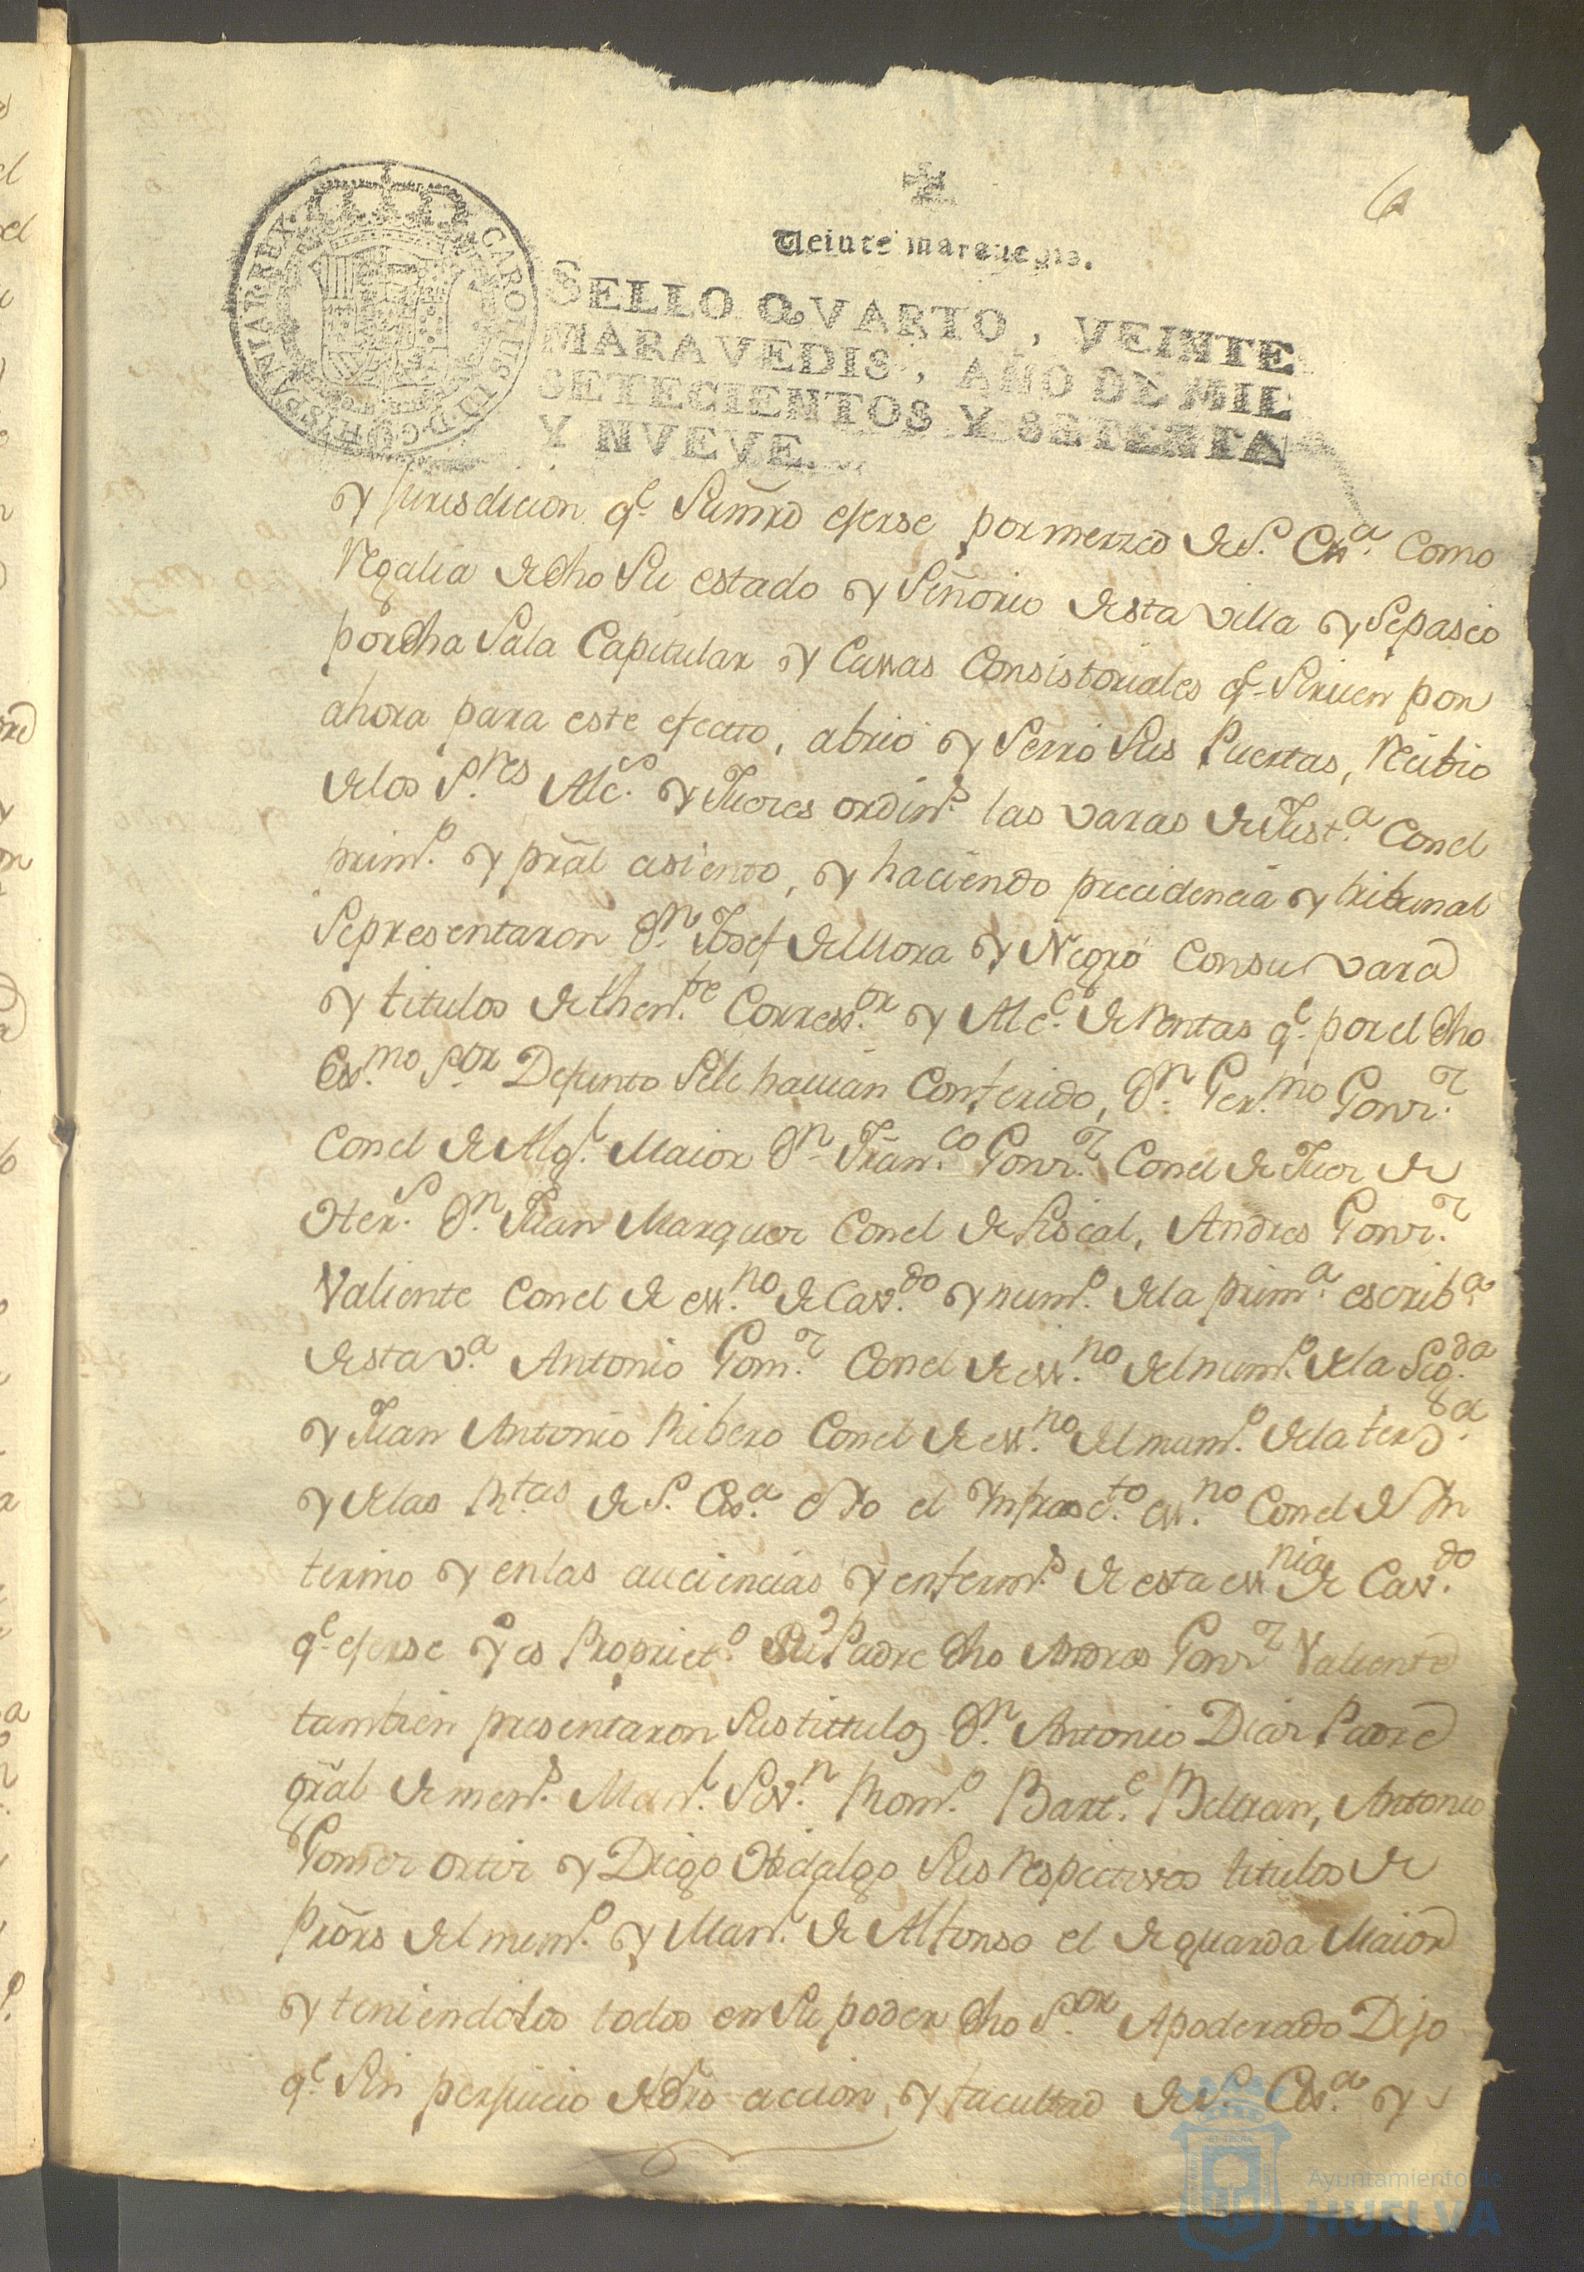 6
Veinte maravedis.
SELLO QVARTO, VEINTE
MARAVEDIS, AÑO DE MIL
SETECIENTOS Y SETENTA
Y NVEVE.
CAROLUS III D.G. HISPANIAR. REX
y Jurisdicion q.e su mrd eserse por merzed de S. Ex.a Como
Regalia de dho su estado y Señorio de esta villa y Sepaseo
por dha Sala Capitular y Cassas Consistoriales q.e Siruen por
ahora para este efecto, abrio y Serro sus Puertas, Recibio
de los S.res Alc.s y Jueces ordin.s las varas de Just.a Con el
prim.o y pral asiento, y haciendo precidencia y tribunal
Se presentaron D.n Josef de Mora y Negro Con su vara
y titulos de then.te Corres.or y Alc.e de Rentas q.e por el dho
Ex.mo S.or Defunto Sele havian Conferido, D.n Ger.mo Gonz.z
Con el de Alg.l Maior D.n Fran.co Gonz.z Con el de Juez de
Hter.s D.n Juan Marquez Con el de Fiscal, Andres Gonz.z
Valiente Con el de ess.no de Cav.do y num.o de la prim.a escrib.a
de esta v.a Antonio Gom.z Con el de ess.no del num.o de la Seg.da
y Juan Antonio Ribero Con el de ess.no del num.o de la terz.a
y de las R.tas de S. Ex.a e Yo el Ynfrasc.to ess.no Con el de Yn
terino y en las auciencias y enferm.s de esta ess.nia de Cav.do
q.e eserse y es Propriet.o su Padre dho Andres Gonz.z Valiente
tambien presentaron sus tittulos D.n Antonio Diaz Padre
gral de men.s Man.l Sev.n Rom.o Bart.e Beltran, Antonio
Gomez ortiz y Diego Hidalgo sus respectivos titulos de
Prors del num.o y Man.l de Alfonso el de guarda Maior
y teniendolos todos en su poder dho S.or Apoderado Dijo
q.e Sin persuicio del dro accion, y facultad de S. Ex.a y
Ayuntamiento de
HUELVA